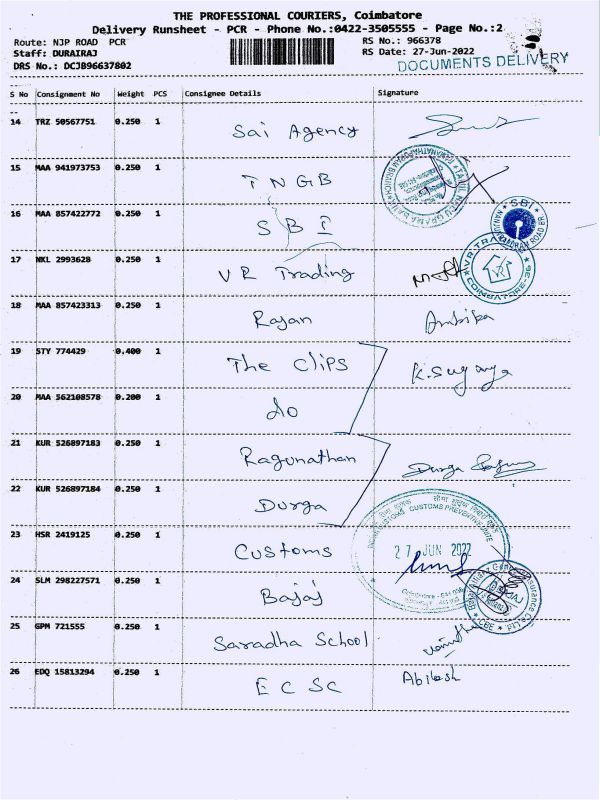 THE PROFESSIONAL COURIERS, Coimbatore
Delivery Runsheet - PCR - Phone No.:0422-3505555 - Page No.:2
Route: NJP ROAD PCR RS No.: 966378
Staff: DURAIRAJ RS Date: 27-Jun-2022
DRS No.: DCJB96637802 DOCUMENTS DELIVERY
S No Consignment No Weight PCS Consignee Details Signature
14 TRZ 50567751 0.250 1 Sai Agency
15 MAA 941973753 0.250 1 TNGB
16 MAA 857422772 0.250 1 SBI SBI
17 NKL 2993628 0.250 1 VR Trading VR TRADING COIMBATORE-36
18 MAA 857423313 0.250 1 Rajan Ambika
19 STY 774429 0.400 1 The Clips K.Suganya
20 MAA 562108578 0.200 1 do
21 KUR 526897183 0.250 1 Ragunathan Durga
22 KUR 526897184 0.250 1 Durga
23 HSR 2419125 0.250 1 Customs 27 JUN 2022
24 SLM 298227571 0.250 1 Bajaj
25 GPM 721555 0.250 1 Saradha School
26 EDQ 15813294 0.250 1 ECSC Abilash